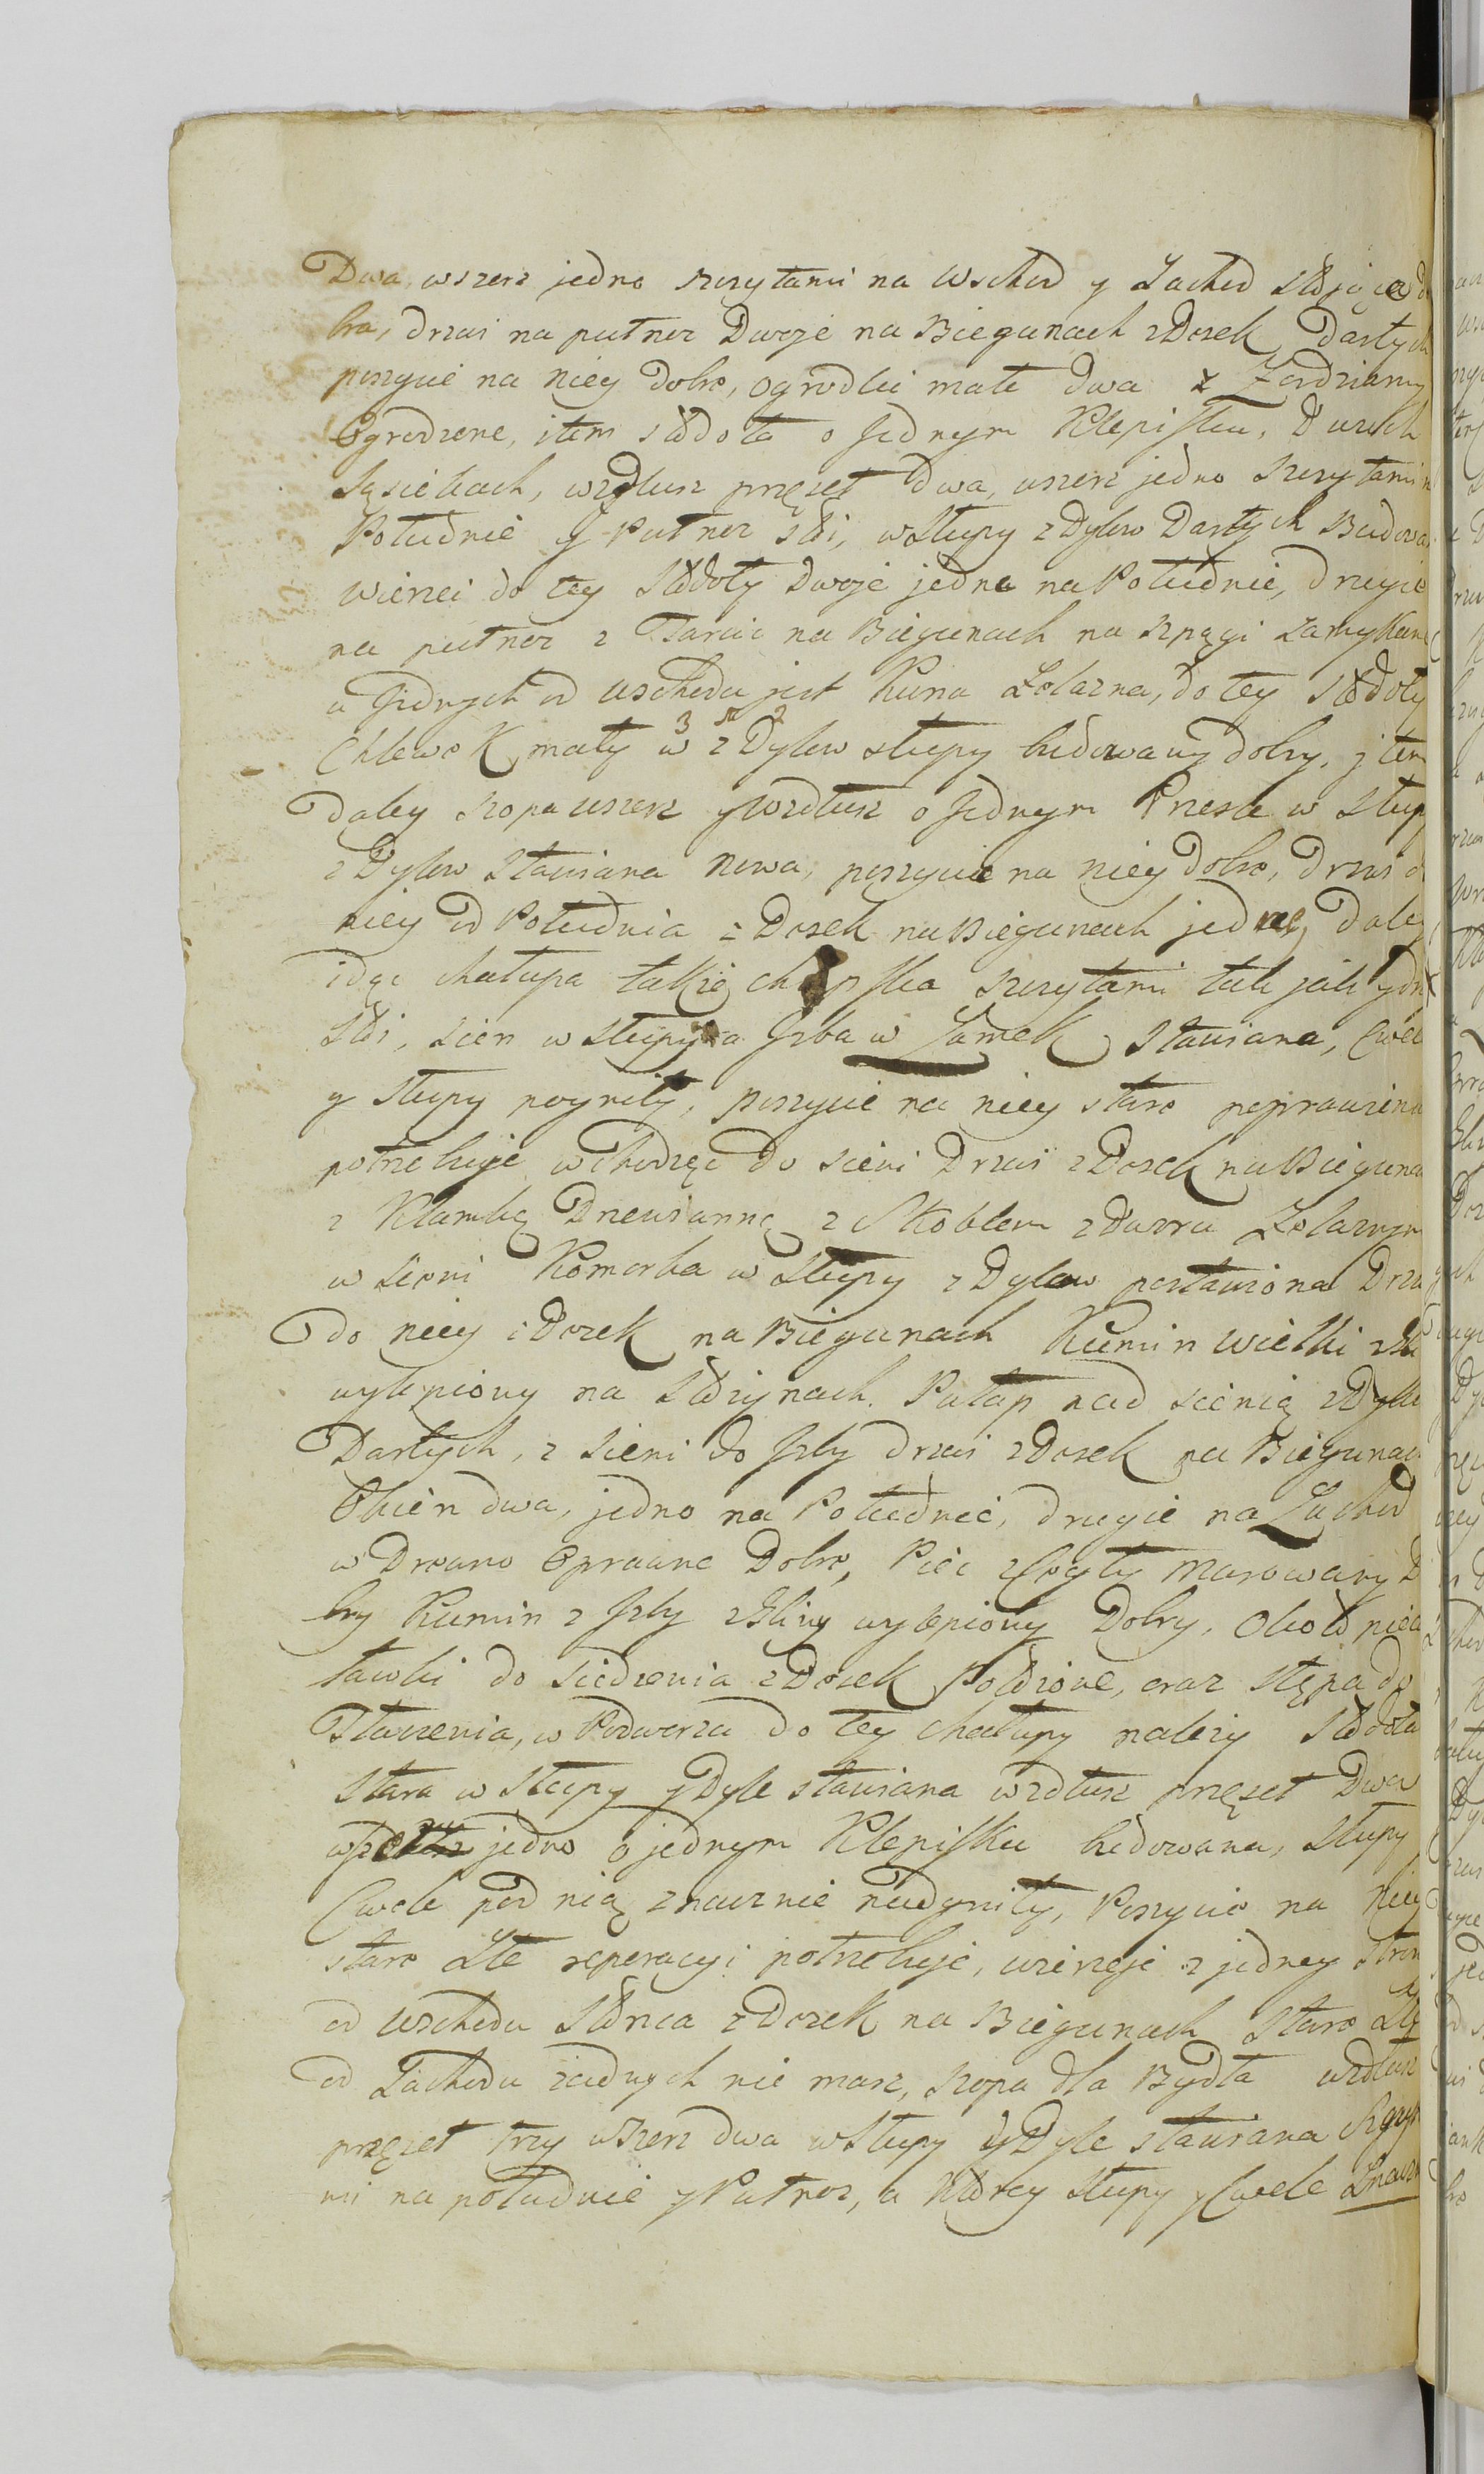 Dwa, wszerz jedno szczytami na Wschod y Zachod stojąca do
bra, drzwi na putnoz Dwoje na Biegunach z Dosek Dartych
poszycie na niey dobre, ogrodki małe dwa z Zerdziamy
Ogrodzene, item stodoła o Jednym Klepisku, Dwuch
Sąsiekach, wzdłusz pręseł dwa, wszerz jedno Szczytami n
Południe y Putnoz stoi, w Słupy z Dylow Dartych Budowa
wierzei do tey Stodoły Dwoje jedne na Południe, drugie
na putnoz z Tarcic na Biegunach na szpągi zamykane
u Jednych od wschodu jest Kuna Zelazna, do tey stodoły
Chlewek mały w 3 z Dylow 2 słupy budowany dobry, jtem
daley szopa wszerz y wzdłusz o Jednym Prześle w Słupy
z Dylow Stawiana nowa, poszycie na niey dobre, drzwi do
niey od Południa z Dosek na Biegunach jedne, daley
idąc chałupa takze chłopska szczytami tak jak y dr
stoi, sien w słupy a Jzba w Zamek Stawiana, Cwele
y Słupy nogniły, poszycie na niey stare poprawienia
potrzebuje wchodząc do sieni Drzwi z Dosek na Biegunach
z Klamką Drewianną z Skoblem z Dworu Zelaznym
w sieni Komorka w Słupy z Dylow postawiona Drzwi
do niey z Dosek na Biegunach Kumin wielki z Gli
wylepiony na Słozynach. Pułap nad sienią z Dylow
Dartych, z sieni do Jzby drzwi z Dosek na Biegunach
Okien dwa, jedno na Południe, drugie na Zachod
w Drewno Oprawne Dobre, Piec z Cegły Murowany D
bry Kumin z Jzby z Gliny wylepiony Dobry, Około pieca
ławki do siedzenia z Dosek położone, oraz stępa do
Tłuczenia, w Podworzu do tey chałupy nalezy stodoła
stara w Słupy y Dyle stawiana wzdłusz pręseł Dwa
wszerz jedno o jednym Klepisku budowana, Słupy
Cwele pod nią znacznie nadgniły, Poszycie na niey
stare Złe reperacyi potrzebuje, wierzeje z jedney stron
od wschodu Słonca z Dosek na Biegunach stare Złe
od Zachodu zadnych nie masz, szopa dla Bydła wzdłusz
pręseł trzy wszerz dwa w Słupy y Dyle stawiana Szczyta
mi na południe y Putnoz, u Ktorey Słupy y Cwele Znaczn